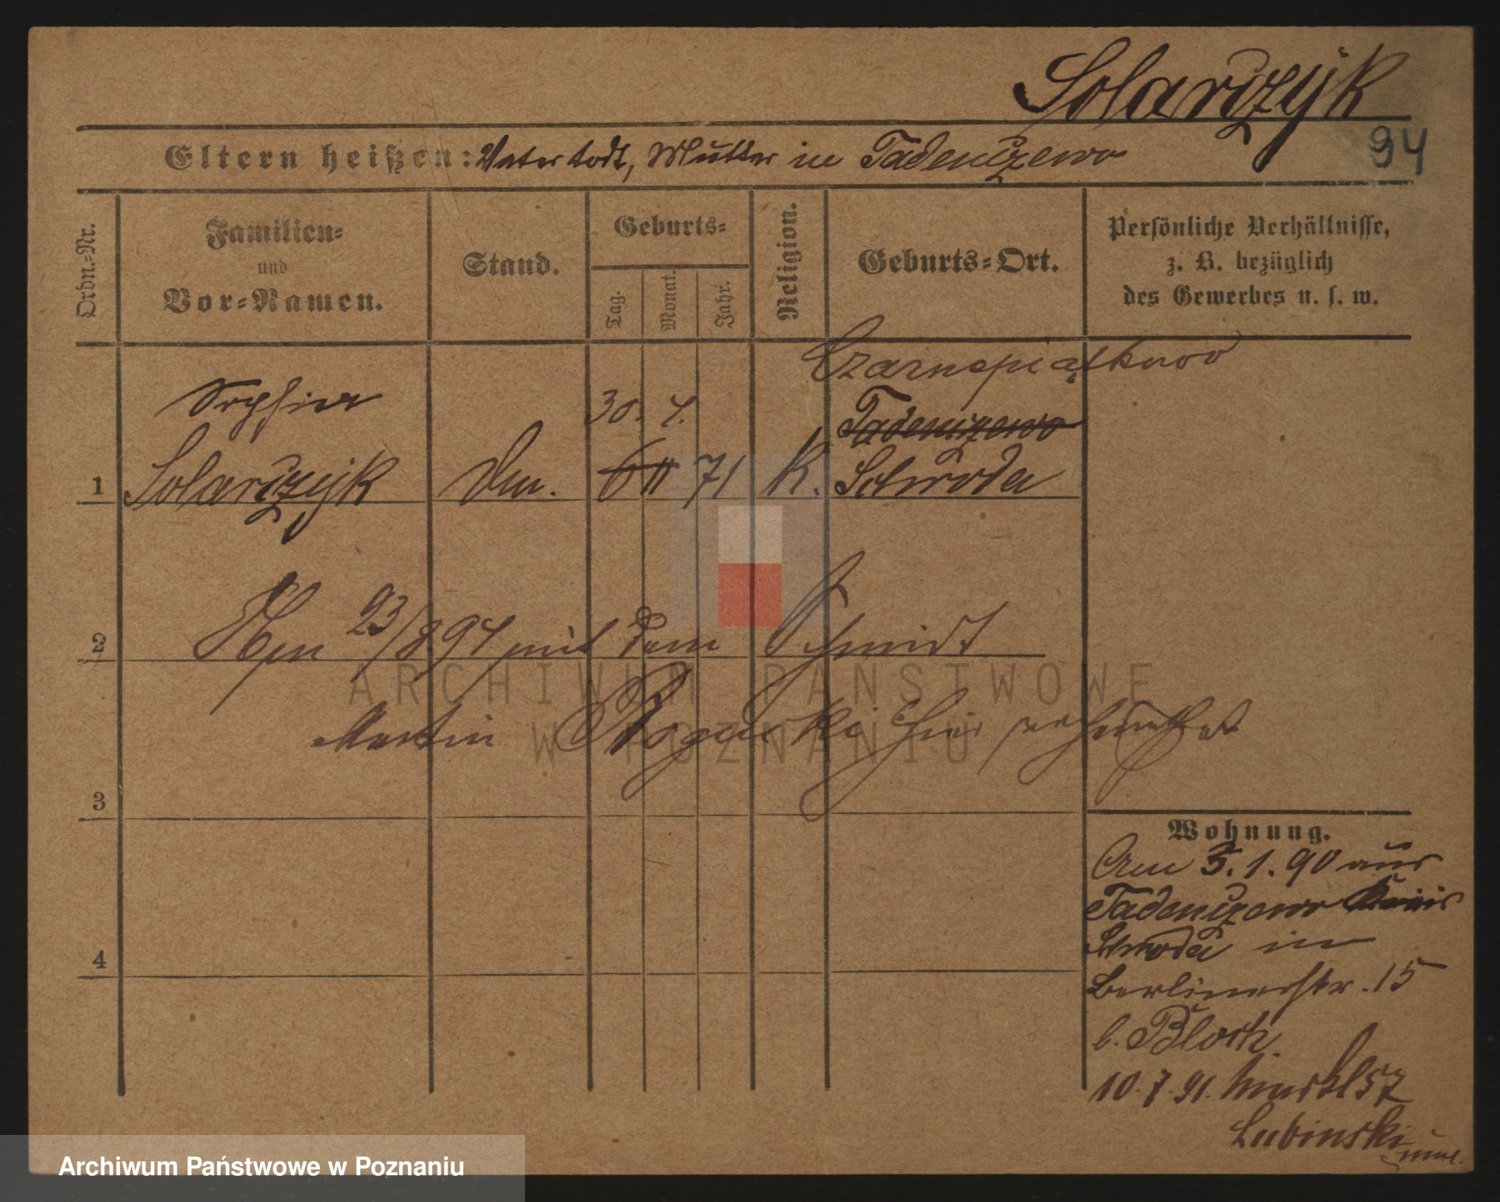 Solarczyk
94
Eltern heißen: Vater todt, Mutter in Tadeuszewo
Ordn.-Nr.
Familien-
und
Vor-Namen.
Stand.
Geburts-
Tag.
Monat.
Jahr.
Religion.
Geburts-Ort.
Persönliche Verhältnisse,
z. B. bezüglich
des Gewerbes u. s. w.
Czarnepiątkowo
Sophia 30. 4. Tadeuszewo
1 Solarczyk 6 11 71 K. Schroda
2 23/8 94 mit dem Schmidt
Martin Rogacki hier verheirathet
3
Wohnung.
Am 5.1.90 aus
Tadeuszewo Kreis
Schroda in
4
Berlinerstr. 15
b. Bloch.
10.7.91. Markt 57
Lubinski
ARCHIWUM PAŃSTWOWE
W POZNANIU
Archiwum Państwowe w Poznaniu